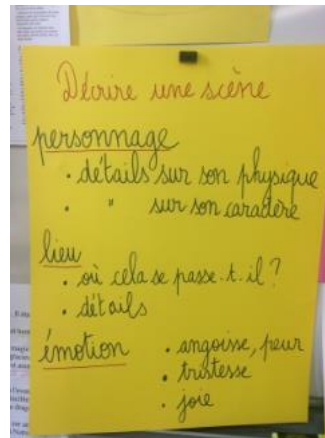 Décrire une scène
personnage
• détails sur son physique
• " sur son caractère
lieu
• où cela se passe-t-il ?
• détails
émotion • angoisse, peur
• tristesse
• joie